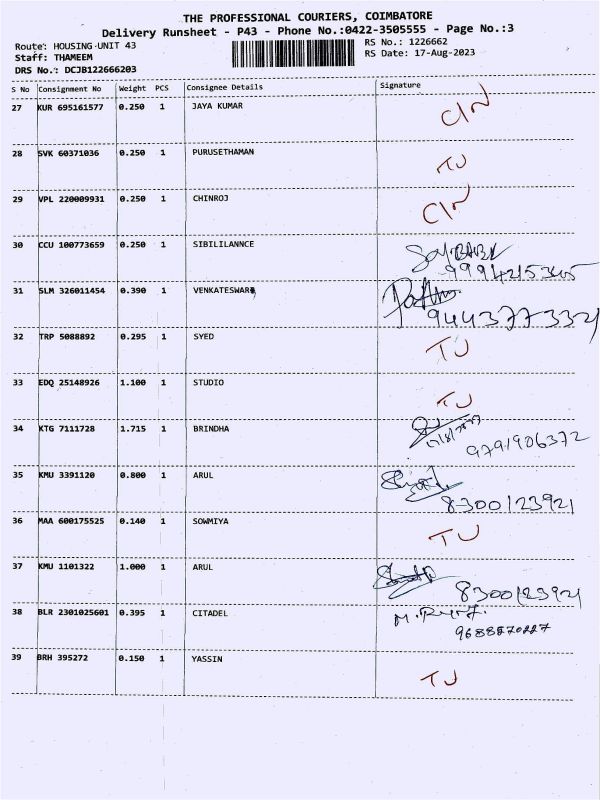 THE PROFESSIONAL COURIERS, COIMBATORE
Delivery Runsheet - P43 - Phone No.:0422-3505555 - Page No.:3
Route: HOUSING UNIT 43 RS No.: 1226662
Staff: THAMEEM RS Date: 17-Aug-2023
DRS No.: DCJB122666203
S No Consignment No Weight PCS Consignee Details Signature
27 KUR 695161577 0.250 1 JAYA KUMAR CIN
28 SVK 60371036 0.250 1 PURUSETHAMAN TJ
29 VPL 220009931 0.250 1 CHINROJ CIN
30 CCU 100773659 0.250 1 SIBILILANNCE
9994215345
31 SLM 326011454 0.390 1 VENKATESWAR
9443773321
32 TRP 5088892 0.295 1 SYED TJ
33 EDQ 25148926 1.100 1 STUDIO TJ
34 KTG 7111728 1.715 1 BRINDHA
9791906372
35 KMU 3391120 0.800 1 ARUL
8300123921
36 MAA 600175525 0.140 1 SOWMIYA TJ
37 KMU 1101322 1.000 1 ARUL
8300123921
38 BLR 2301025601 0.395 1 CITADEL M.
9688870227
39 BRH 395272 0.150 1 YASSIN TJ